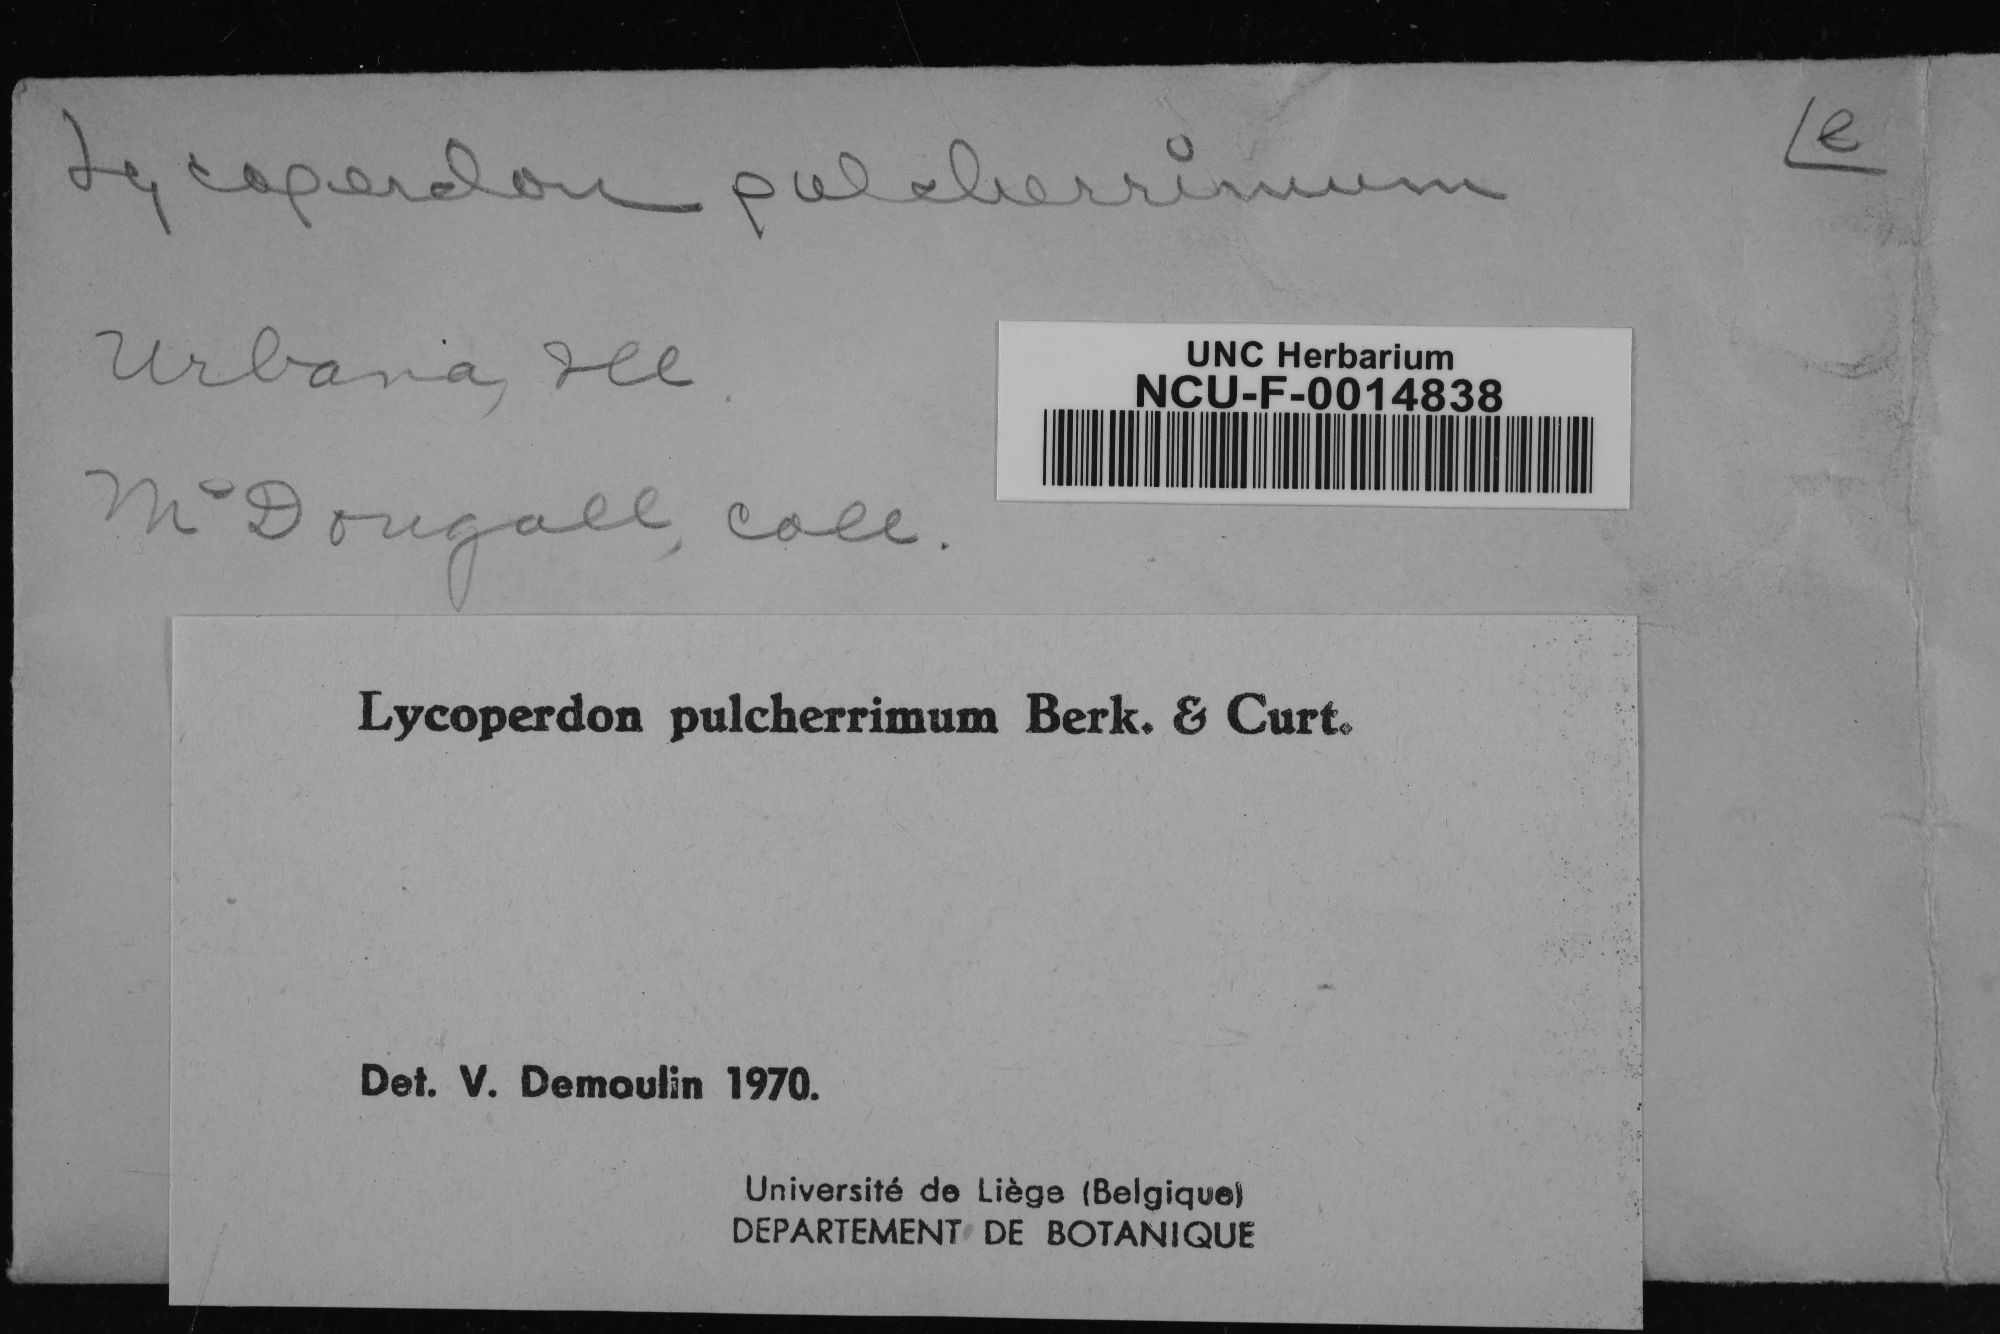 Lycoperdon pulcherrimum
e
Urbana, Ill.
McDougall, coll.
UNC Herbarium
NCU-F-0014838
Lycoperdon pulcherrimum Berk. & Curt.
Det. V. Demoulin 1970.
Université de Liège (Belgique)
DEPARTEMENT DE BOTANIQUE